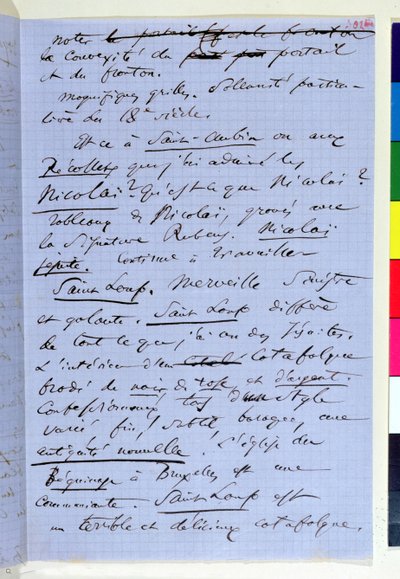 noter le portail et le fronton
la convexité du portail
et du fronton.
Magnifiques grilles. Solennité particu-
lière du 18e siècle.
Est ce à Saint-Aubin ou aux
Récollets que j'ai admiré les
Nicolaï? Qu'est ce que Nicolaï?
Tableaux de Nicolaï, gravés avec
la signature Rubens. Nicolaï
jésuite. Continue à travailler
Saint Loup. Merveille sinistre
et galante. Saint Loup diffère
de tout ce que j'ai vu des Jésuites.
L'intérieur d'un catafalque
brodé de noir, de rose, et d'argent.
Confessionnaux, tous d'un style
varié, fin, subtil, baroque, une
antiquité nouvelle. L'église du
Béguinage à Bruxelles est une
communiante. Saint Loup est
un terrible et délicieux catafalque.